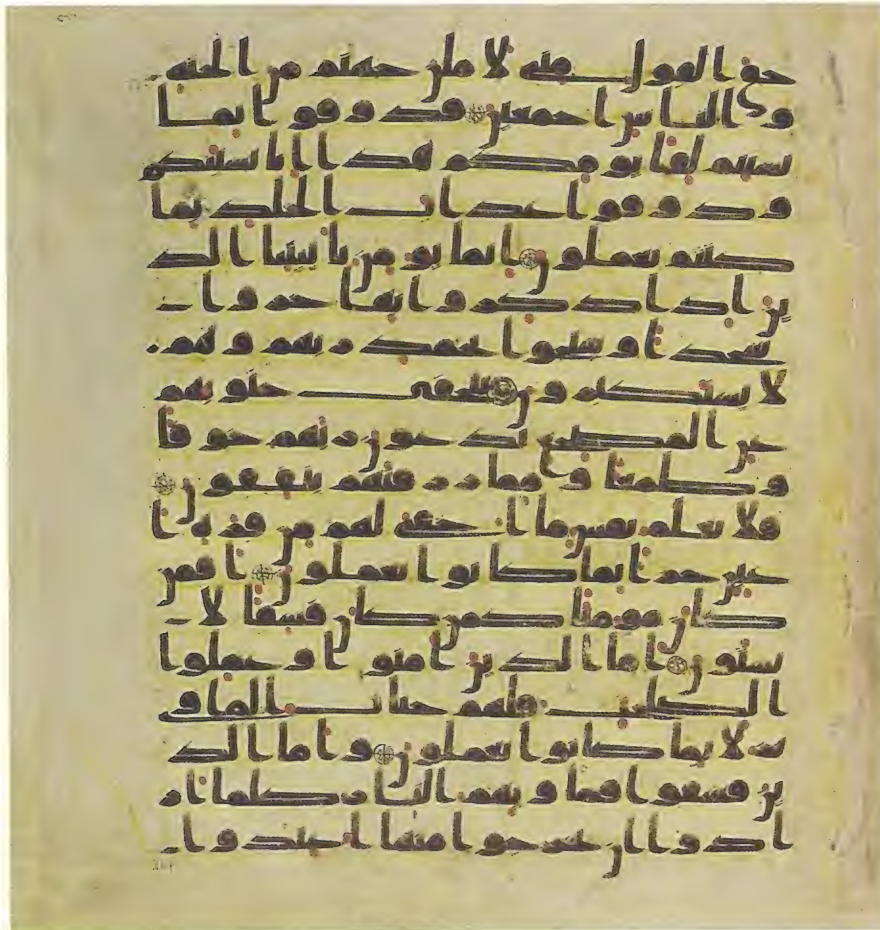 حق القول مني لاملن جهنم من الجنه
و الناس اجمعين فذوقوا بما
نسيتم لقا يومكم هذا انا نسينكم
وذوقوا عذاب الخلد بما
كنتم تعملون انما يومن بايتنا الذ
ين اذا ذكروا بها خروا
سجدا وسبحوا بحمد ربهم وهم
لا يستكبرون تتجافى جنوبهم
عن المضجع يدعون ربهم خوفا
وطمعا ومما رزقنهم ينفقون
فلا تعلم نفس ما اخفي لهم من قره ا
عين جزا بما كانوا يعملون افمن
كان مومنا كمن كان فسقا لا
يستون اما الذين امنوا وعملوا
الصلحت فلهم جنت الماوى
نزلا بما كانوا يعملون واما الذ
ين فسقوا فماويهم النار كلما ار
ادوا ان يخرجوا منها اعيدوا